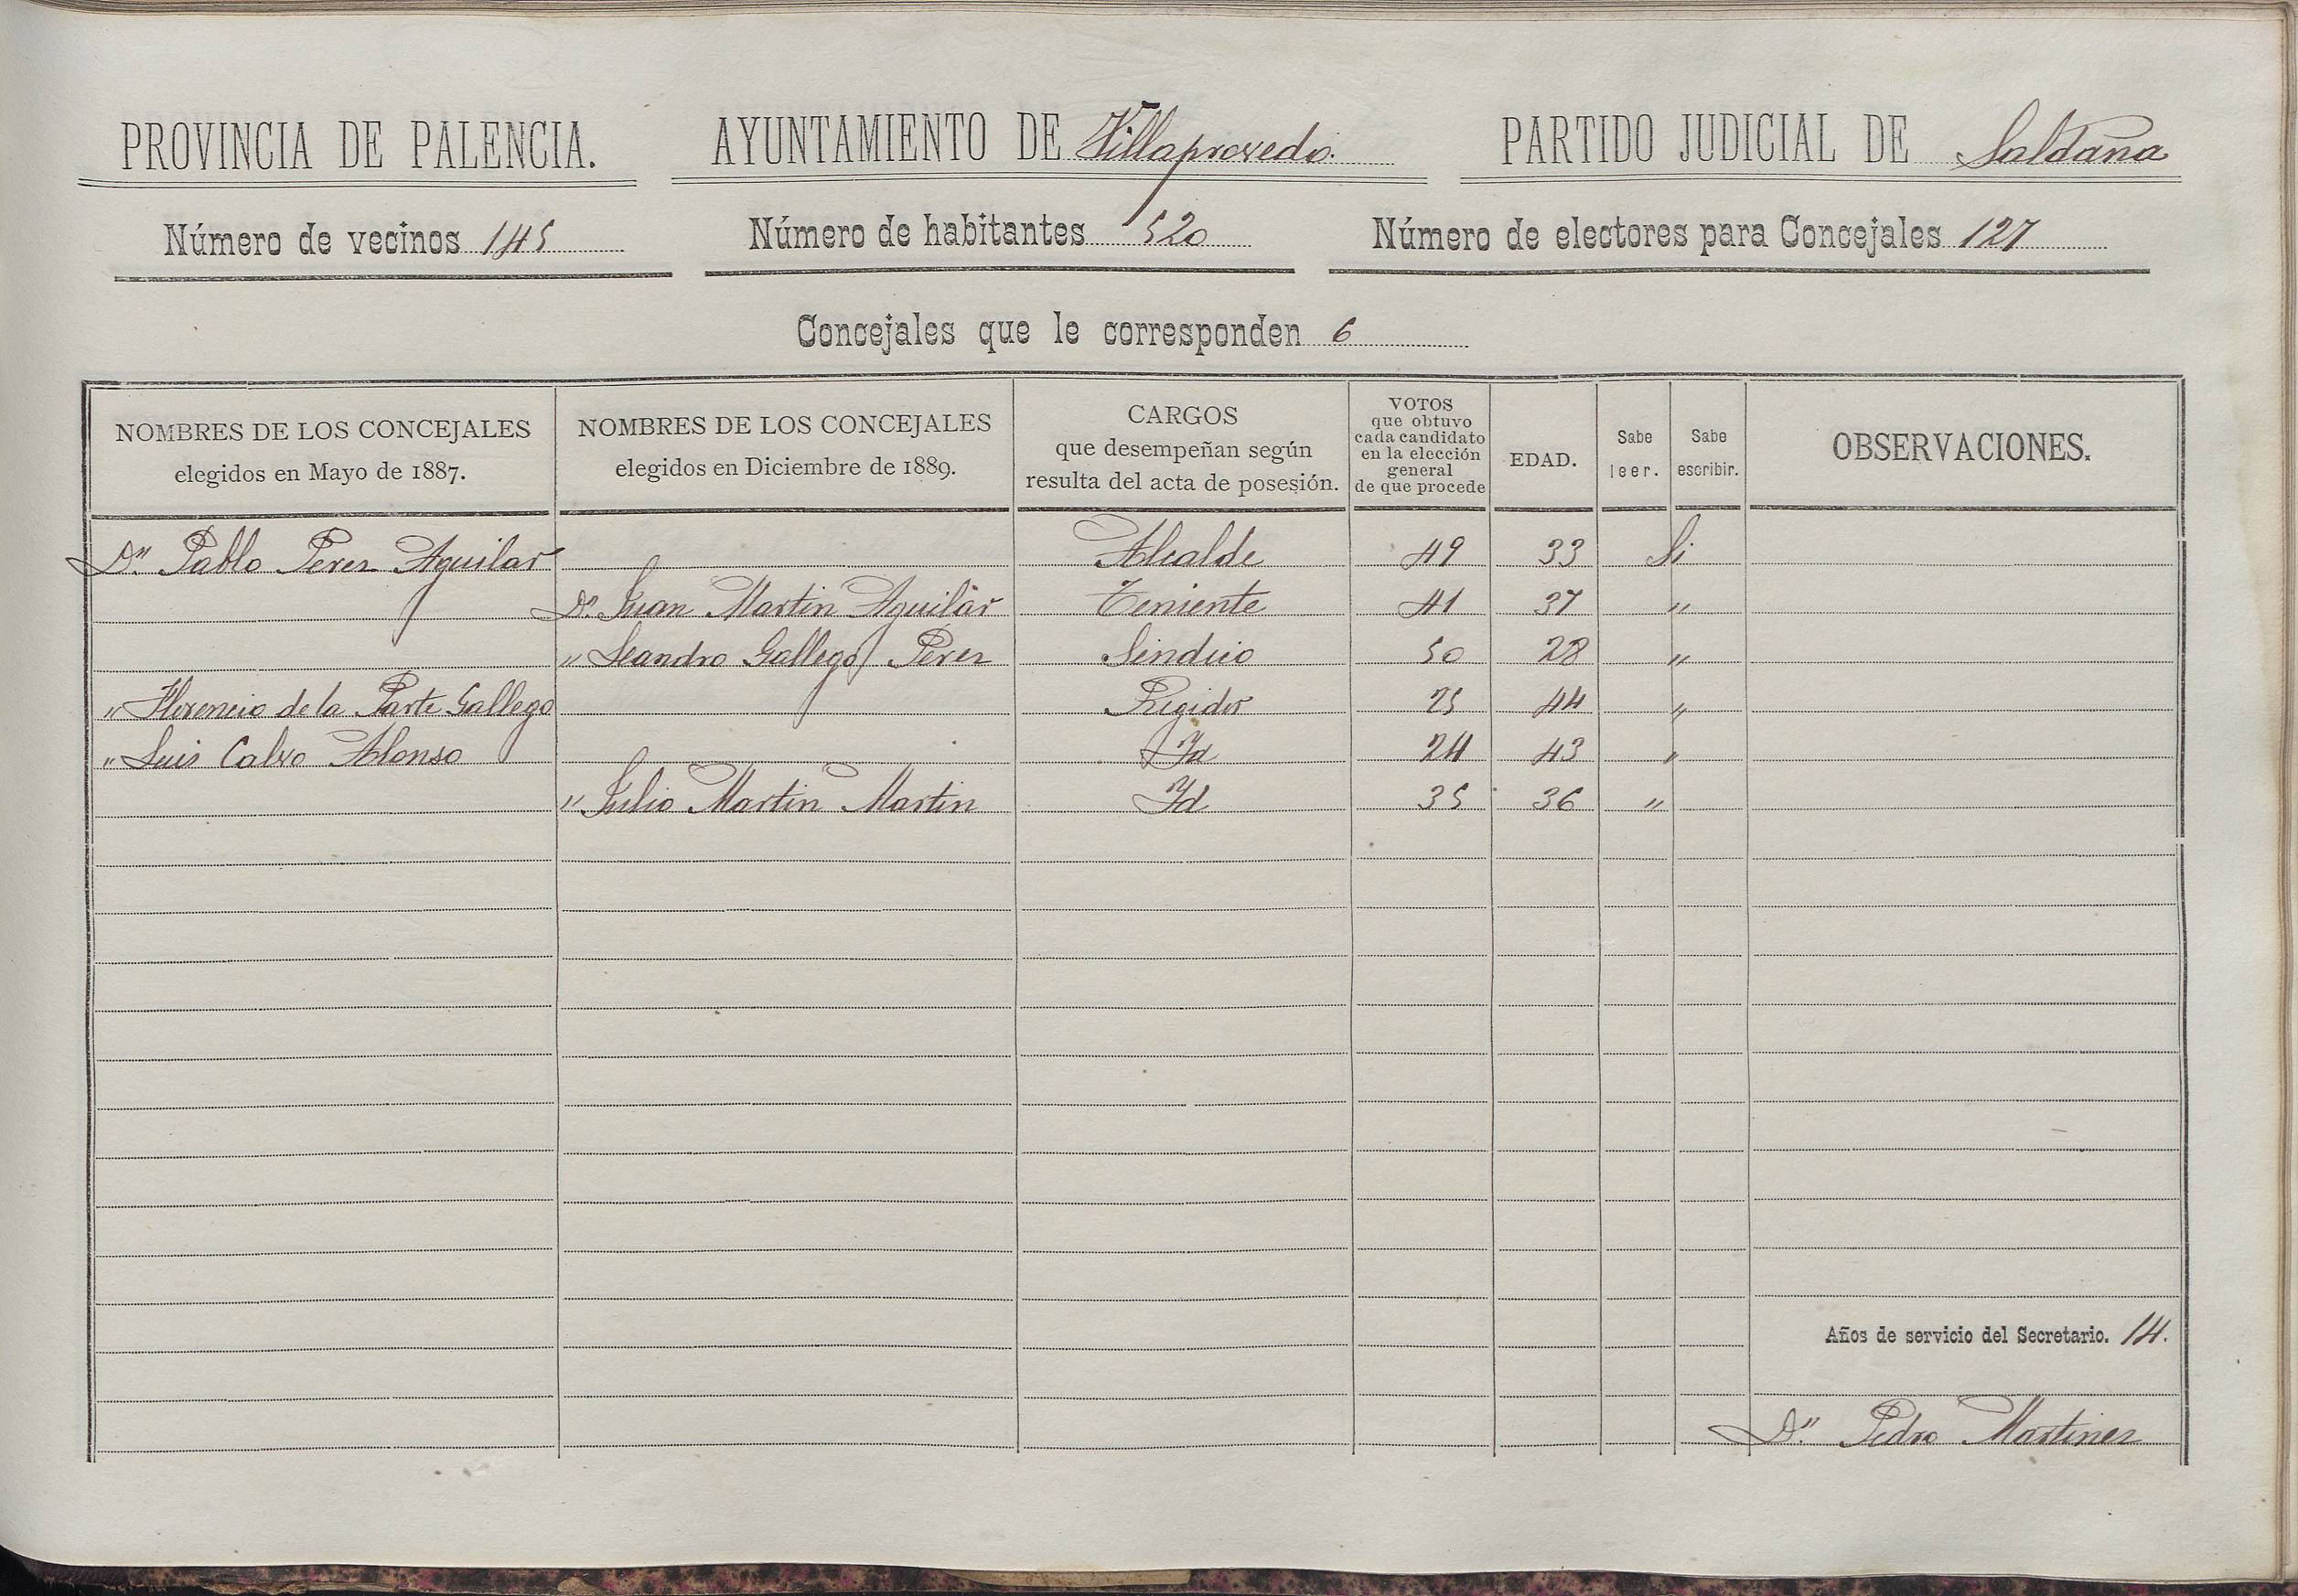 PROVINCIA DE PALENCIA. AYUNTAMIENTO DE Villaprovedo. PARTIDO JUDICIAL DE Saldaña
Número de vecinos 145 Número de habitantes 520 Número de electores para Concejales 127
Concejales que le corresponden 6
NOMBRES DE LOS CONCEJALES elegidos en Mayo de 1887.
NOMBRES DE LOS CONCEJALES elegidos en Diciembre de 1889.
CARGOS que desempeñan según resulta del acta de posesión.
VOTOS que obtuvo cada candidato en la elección general de que procede
EDAD.
Sabe leer.
Sabe escribir.
OBSERVACIONES.
Dn. Pablo Perez Aguilar Alcalde 49 33 Si
Dn. Juan Martin Aguilar Teniente 41 37 "
" Leandro Gallego Perez Sindico 50 28 "
" Florencio de la Parte Gallego Regidor 25 44 "
" Luis Calvo Alonso Id 24 43 "
" Julio Martin Martin Id 35 36 "
Años de servicio del Secretario. 14.
Dn. Pedro Martinez